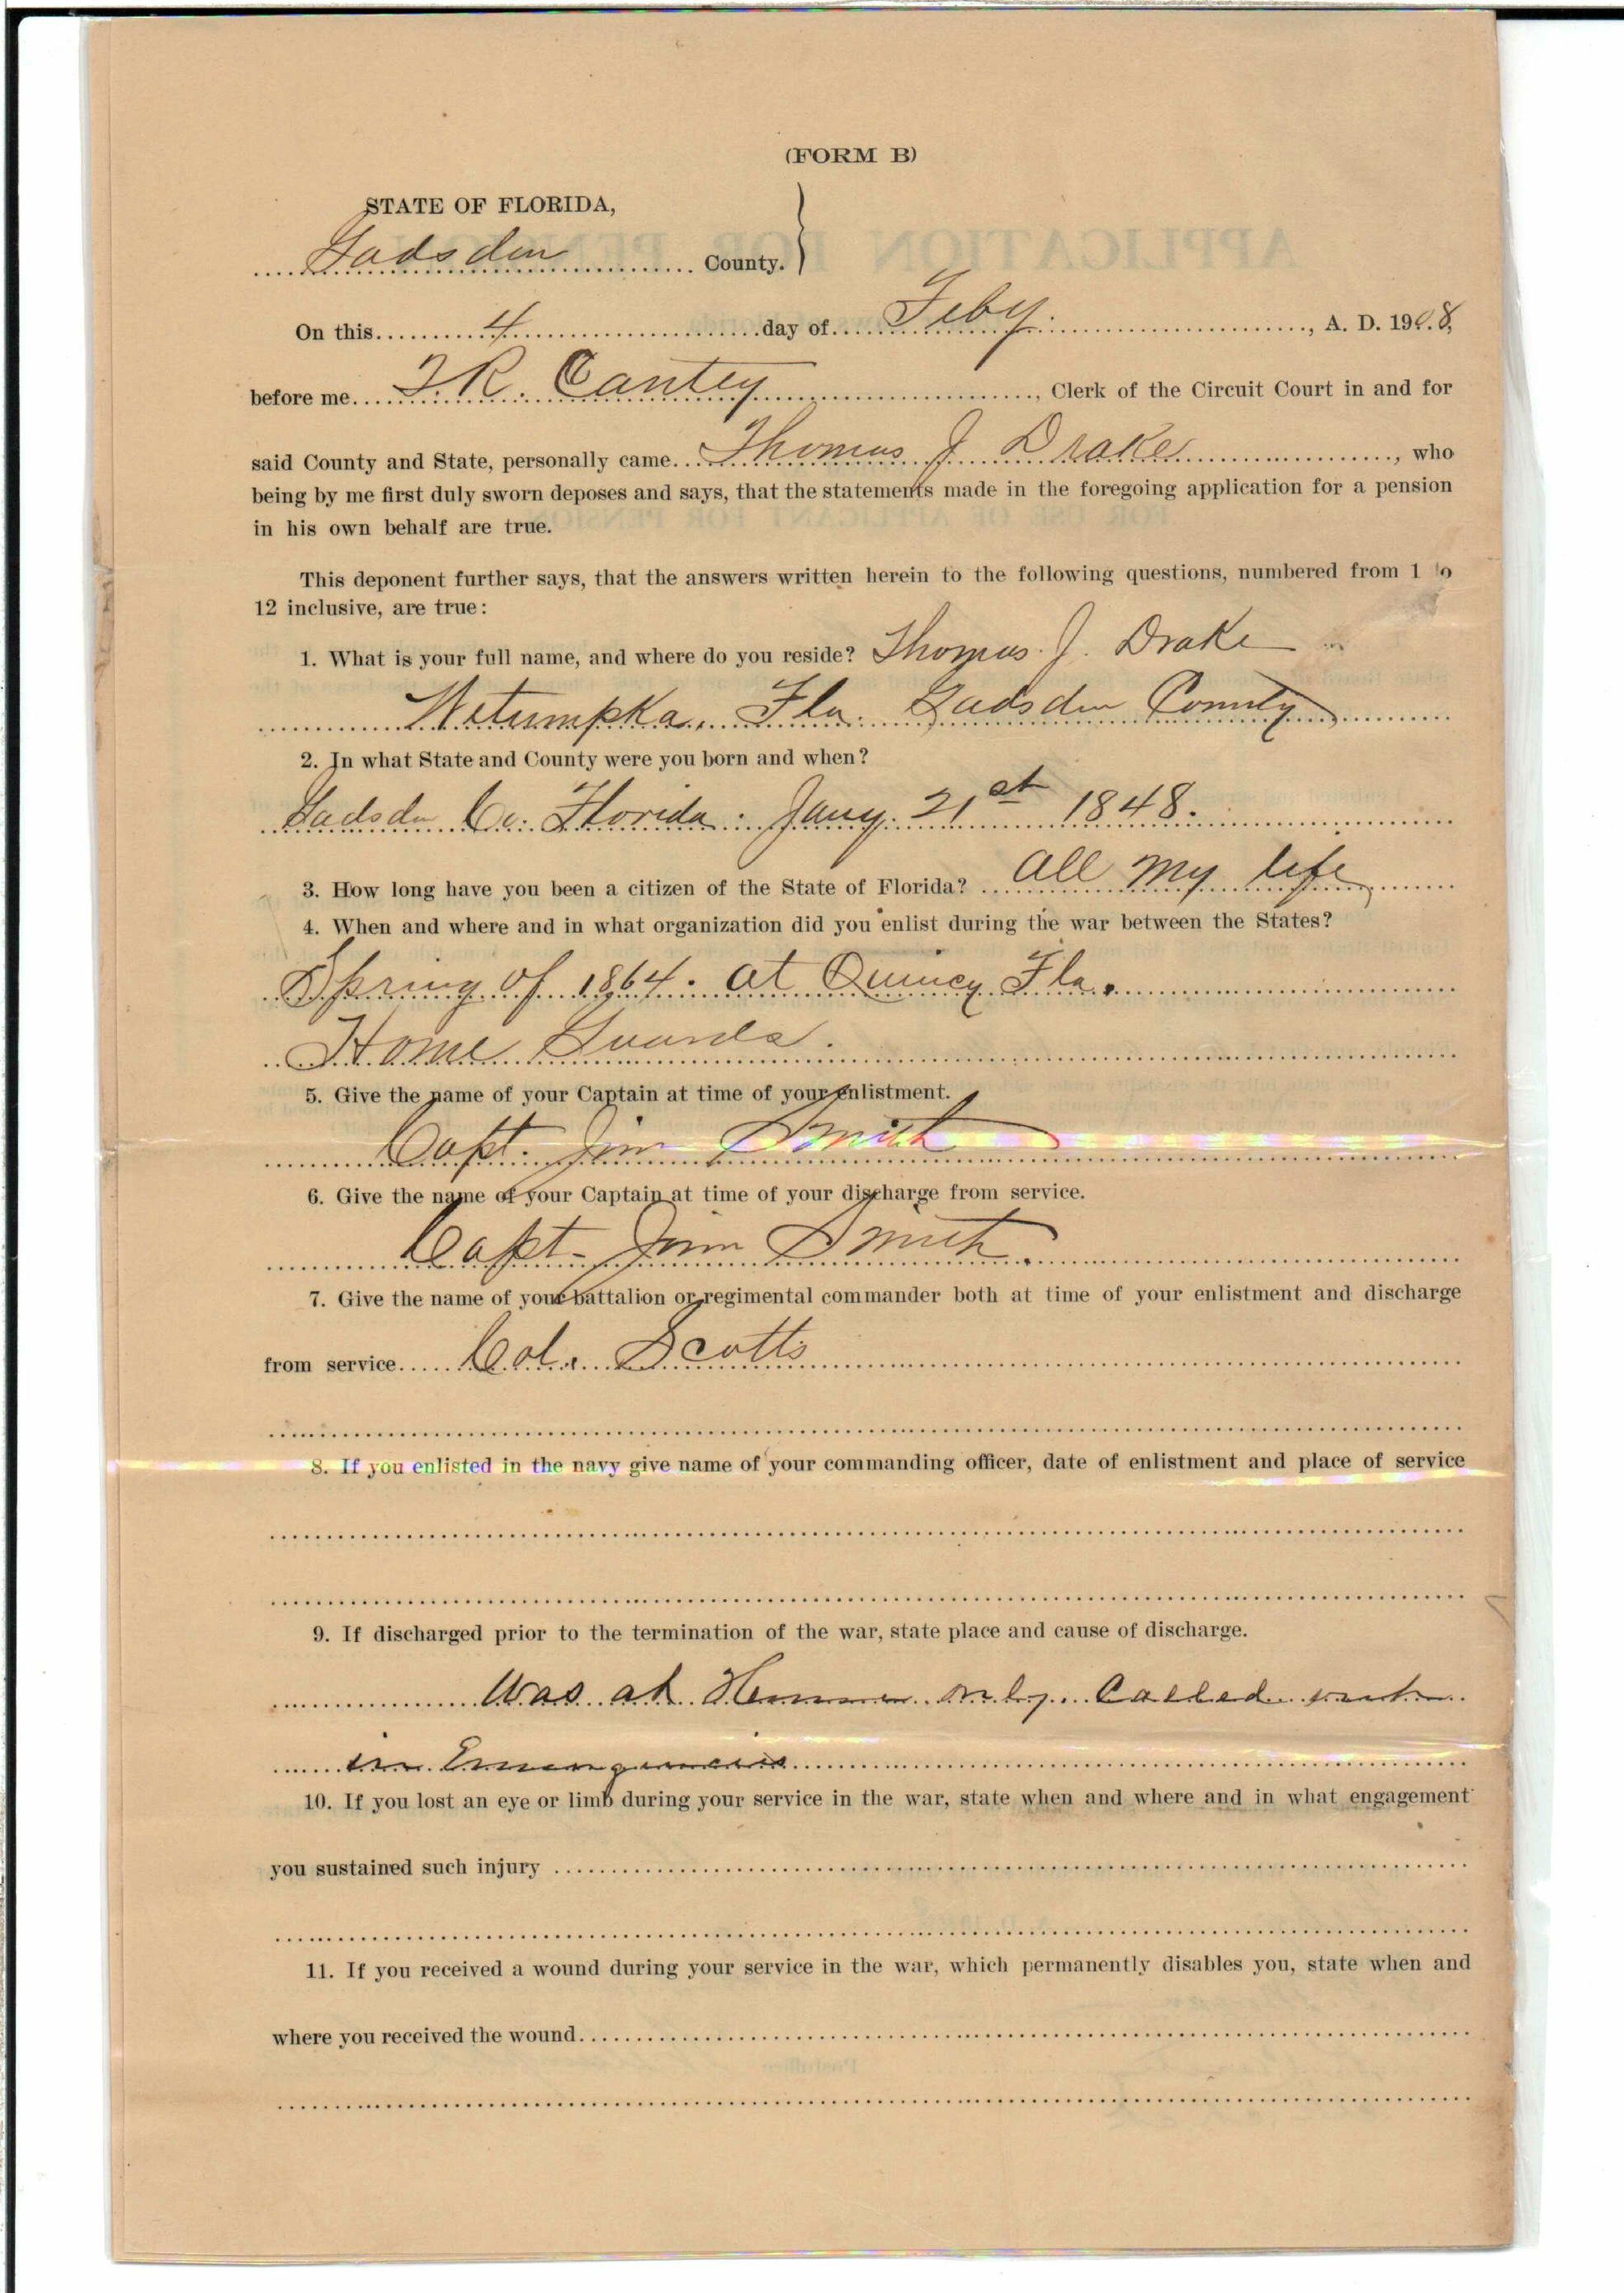 (FORM B)
STATE OF FLORIDA,
Gadsden County.
On this 4 day of Feby. , A. D. 1908,
before me R. Cantey , Clerk of the Circuit Court in and for
said County and State, personally came Thomas J Drake , who
being by me first duly sworn deposes and says, that the statements made in the foregoing application for a pension
in his own behalf are true.
This deponent further says, that the answers written herein to the following questions, numbered from 1 to
12 inclusive, are true:
1. What is your full name, and where do you reside? Thomas. J. Drake
Wetumpka, Fla. Gadsden County
2. In what State and County were you born and when?
Gadsden Co. Florida. Jany. 21st 1848.
3. How long have you been a citizen of the State of Florida? all my life
4. When and where and in what organization did you enlist during the war between the States?
Spring of 1864. at Quincy Fla.
Home Guards.
5. Give the name of your Captain at time of your enlistment.
Capt. Jim Smith
6. Give the name of your Captain at time of your discharge from service.
Capt- Jim Smith.
7. Give the name of your battalion or regimental commander both at time of your enlistment and discharge
from service Col. Scotts
8. If you enlisted in the navy give name of your commanding officer, date of enlistment and place of service
9. If discharged prior to the termination of the war, state place and cause of discharge.
Was at Home only Called out
in Emergencies
10. If you lost an eye or limb during your service in the war, state when and where and in what engagement
you sustained such injury
11. If you received a wound during your service in the war, which permanently disables you, state when and
where you received the wound